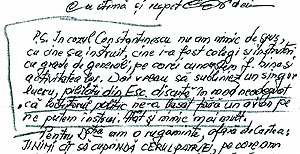 cu stimă și respect
P.S. În cazul Constantinescu nu am nimic de spus,
cu cine s-a instruit, cine i-a fost colegi și instructori
cu grade de generali, pe care i cunoaștem f. bine și
activitatea lor. Doar vreau să subliniez un singur
lucru, piloții din Esc. discută în mod neobligat
că locțiitorul politic ne-a lăsat fără un avion pe
ne putem instrui. Atât și nimic mai mult.
Pentru am o rugăminte, afară de cartea:
INIMI CAT SĂ CUPRINDĂ CERUL PATRIEI, pe care am